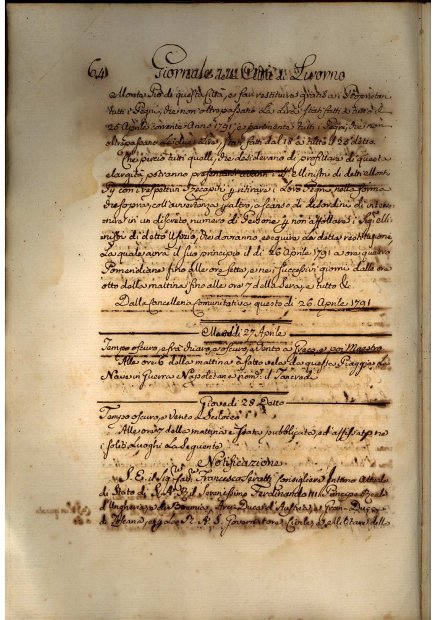 64 Giornale della Città di Livorno
Monte Pio di questa Città, e far restituire gratis ai Proprietari
tutti i Pegni, che non oltrepassano Lire fatti a tutto il
25 Aprile corrente Anno 1791, e parimente tutti i Pegni, che non
oltrepassano le due Lire, stati fatti dal 18 a tutto il 25 detto.
Che perciò tutti quelli, che desiderano di profittare di questa
Carità, potranno presentarsi avanti i Ministri di detti Monti
Pij con i respettivi Recapiti, ritirare i Loro Pegni nella forma
che sopra, coll'avvertenza, a scanso di disordini di interve
nire in un discreto numero di Persone non affollare i Sigg.
nistri di detto Ufizio, che dovranno eseguire la detta restituzione,
La quale avrà il suo principio il dì 26 Aprile 1791 a ore quattro
Pomeridiane fino alle ore sette, e nei successivi giorni dalle ore
otto della mattina fino alle ore 7 della Sera, e tutto &c.
Dalla Cancelleria Comunitativa questo dì 26 Aprile 1791
Mercoledì 27 Aprile
Tempo oscuro, e frà chiaro, e oscuro, e Vento a Greco, e poi Maestro
Alle ore 6 della mattina à fatto vela da questa Piaggia la
Nave in Guerra Napoletana nom. il Tancredi
Giovedì 28 Detto
Tempo oscuro, e Vento a Scilocco
Alle ore 7 della mattina è stata pubblicata, ed affissa ne
i soliti Luoghi la Seguente
Notificazione
S. E. il Sig. Francesco Seratti Consigliere Intimo Attuale
di Stato di S. A. R. il Serenissimo Ferdinando III Principe Reale
d'Ungheria, e di Boemia, Arciduca d'Austria, Gran Duca di
Toscana, S. Governatore Civile, e Militare della